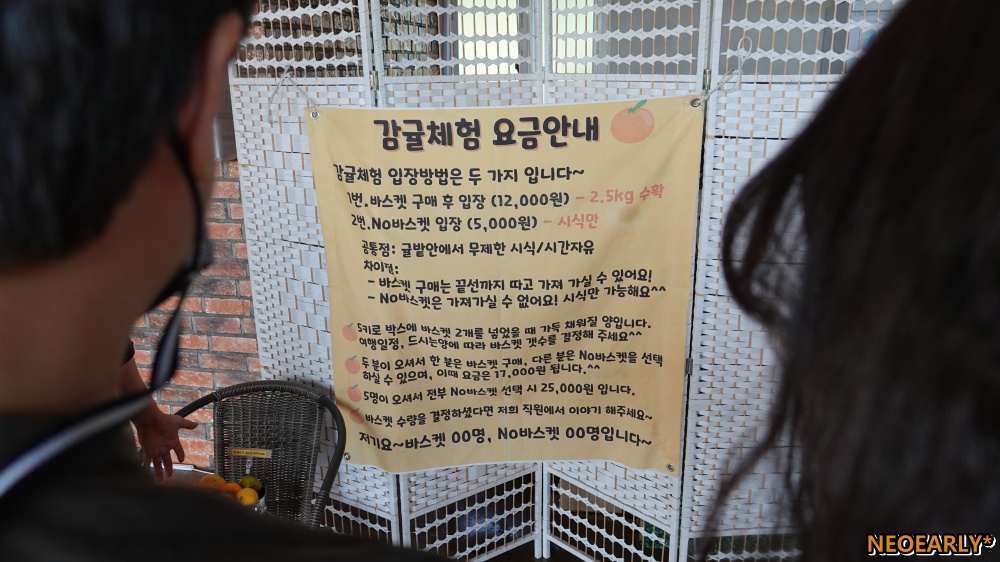 감귤체험 요금안내
감귤체험 입장방법은 두 가지 입니다~
1번.바스켓 구매 후 입장 (12,000원) - 2.5kg 수확
2번.No바스켓 입장 (5,000원) - 시식만
공통점: 귤밭안에서 무제한 시식/시간자유
차이점:
- 바스켓 구매는 끝선까지 따고 가져 가실 수 있어요!
- No바스켓은 가져가실 수 없어요! 시식만 가능해요^^
5키로 박스에 바스켓 2개를 넣었을 때 가득 채워질 양입니다.
여행일정, 드시는양에 따라 바스켓 갯수를 결정해 주세요^^
두 분이 오셔서 한 분은 바스켓 구매, 다른 분은 No바스켓을 선택
하실 수 있으며, 이때 요금은 17,000원 됩니다.^^
5명이 오셔서 전부 No바스켓 선택 시 25,000원 입니다.
바스켓 수량을 결정하셨다면 저희 직원에서 이야기 해주세요~
저기요~바스켓 00명, No바스켓 00명입니다~
NEOEARLY*